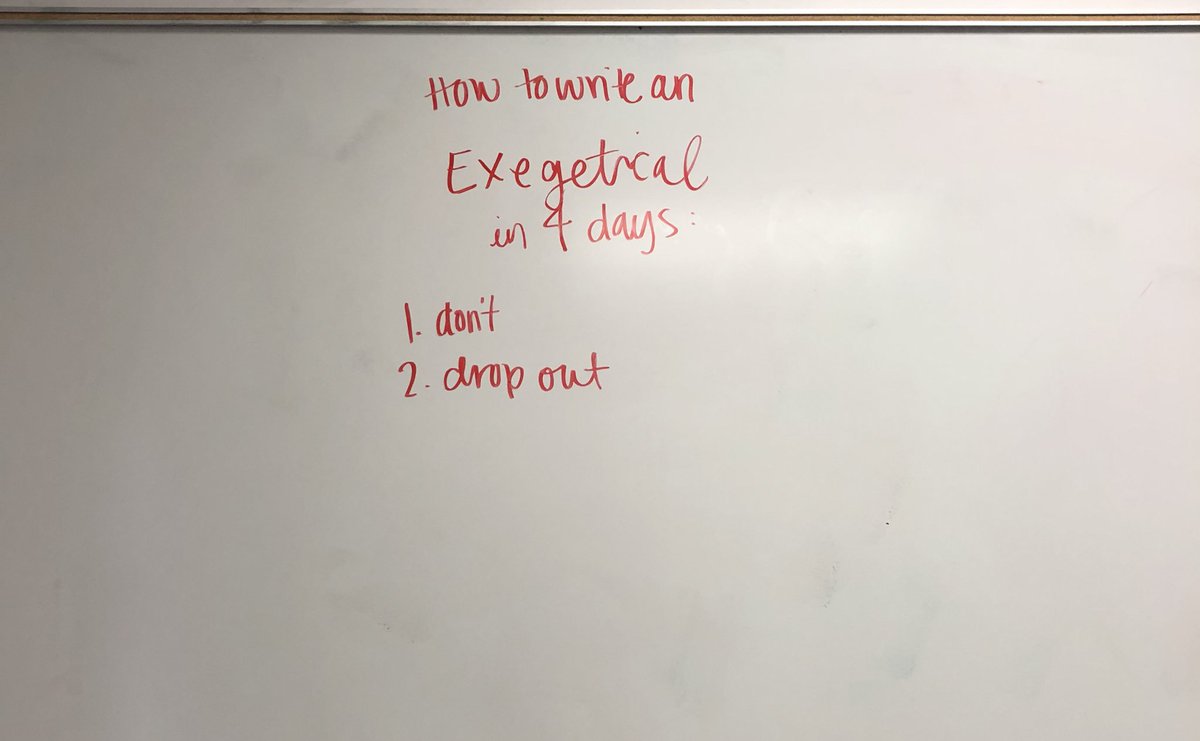 How to write an
Exegetical
in 4 days:
1. don't
2. drop out